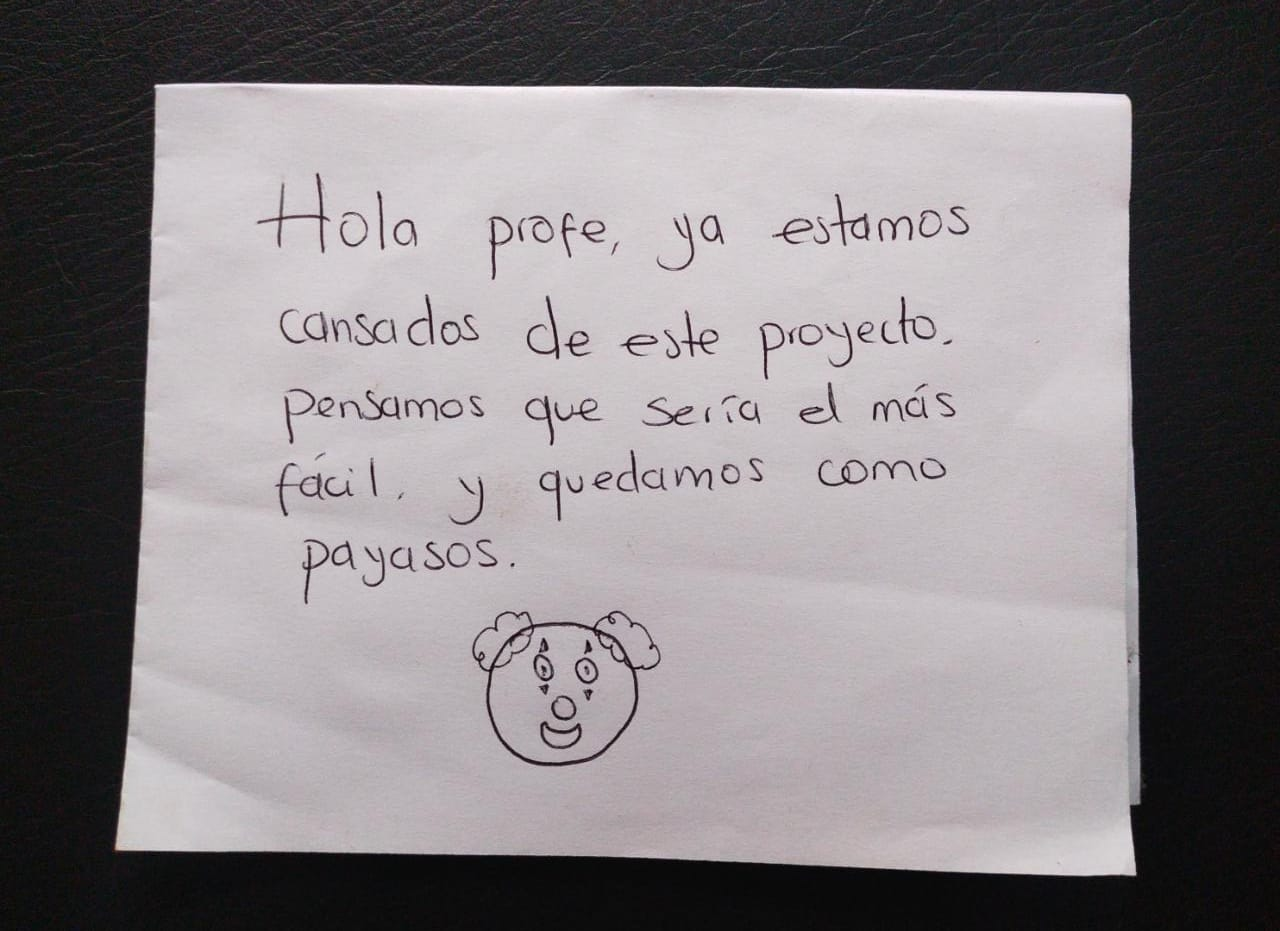 Hola profe, ya estamos
cansados de este proyecto.
pensamos que sería el más
fácil. y quedamos como
payasos.